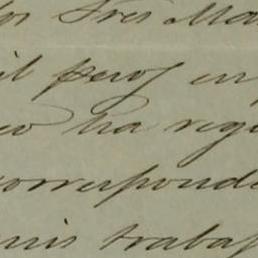 los Tres Ma
il pero en
eo ha regi
corresponde
mis trabaj